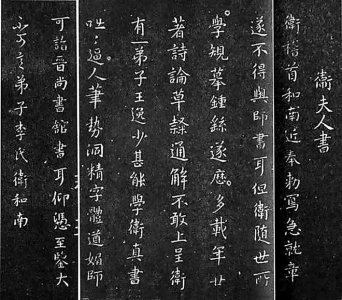 衛夫人書
衛稽首和南近奉勅寫急就章
遂不得與師書耳但衛隨世所
學規摹鍾繇遂歷多載年廿
著詩論草隸通解不敢上呈衛
有弟子王逸少甚能學衛真書
咄咄逼人筆勢洞精字體遒媚師
可詣晉尚書館書耳仰憑至鑒大
不可言弟子李氏衛和南